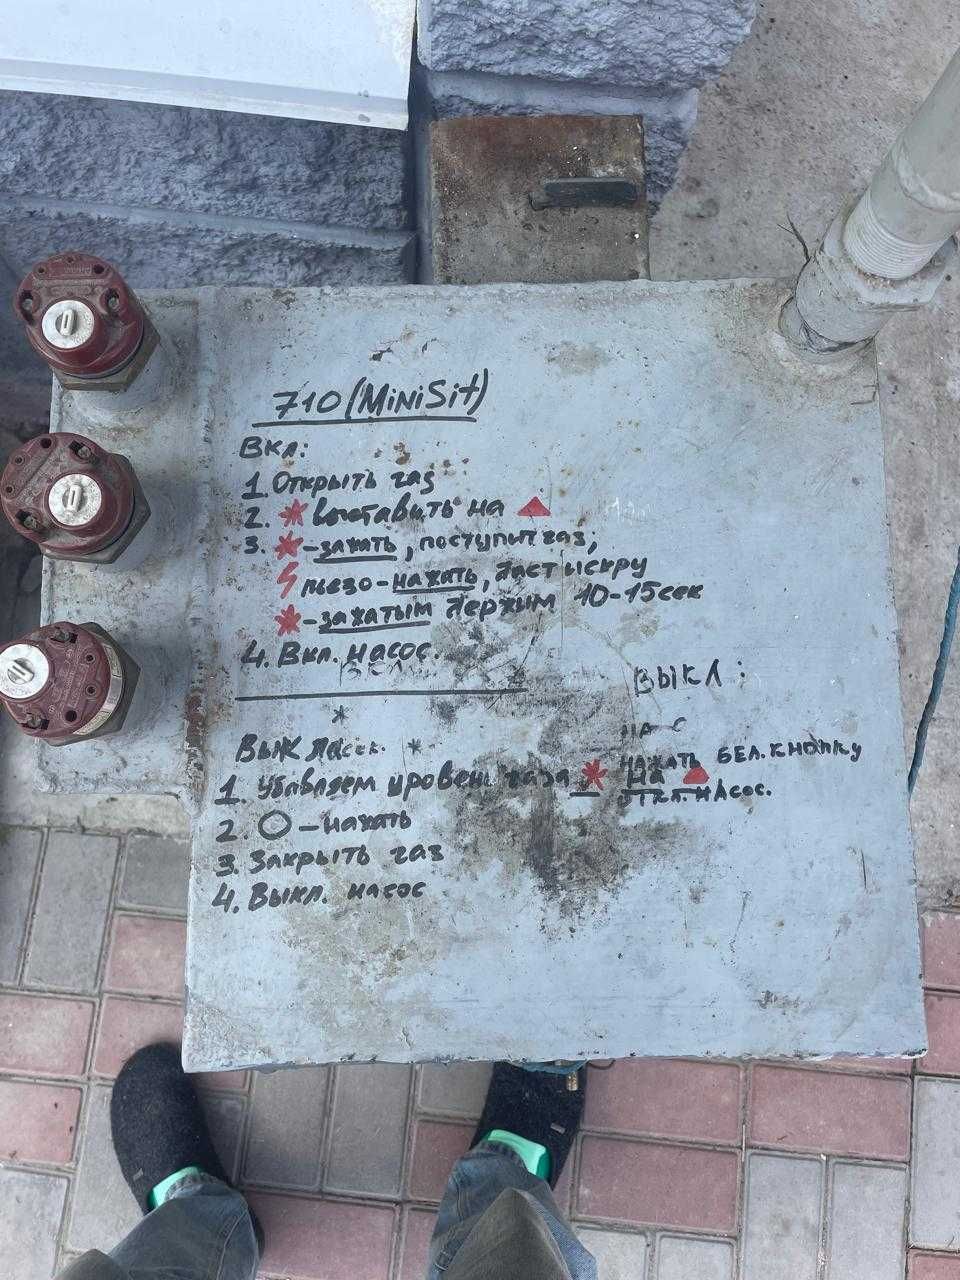 710 (MiniSit)
Вкл:
1. Открыть газ
2. * выставить на ▲
3. * - зажать, поступит газ;
пьезо - нажать, даст искру
* - зажатым держим 10-15 сек
4. Вкл. насос.
Выкл
1. Убавляем уровень газа * на ▲
2. ○ - нажать
3. Закрыть газ
4. Выкл. насос
ВЫКЛ:
НАЖАТЬ БЕЛ. КНОПКУ
ОТКЛ. НАСОС.